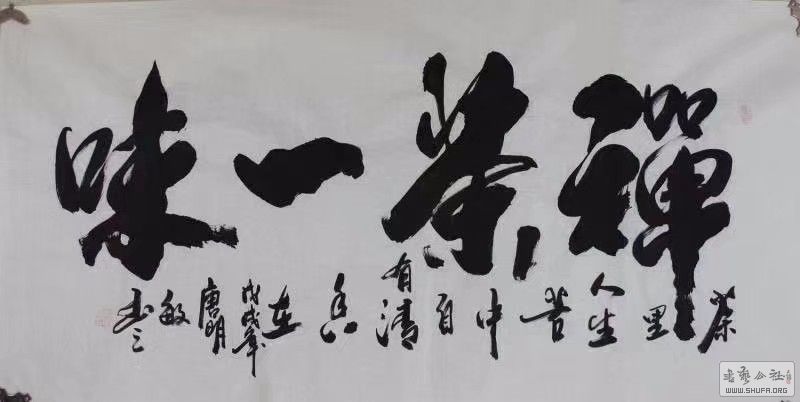 禪茶一味
茶里人生苦中自有清香在
戊戌年唐明敏书之
书艺公社
WWW.SHUFA.ORG